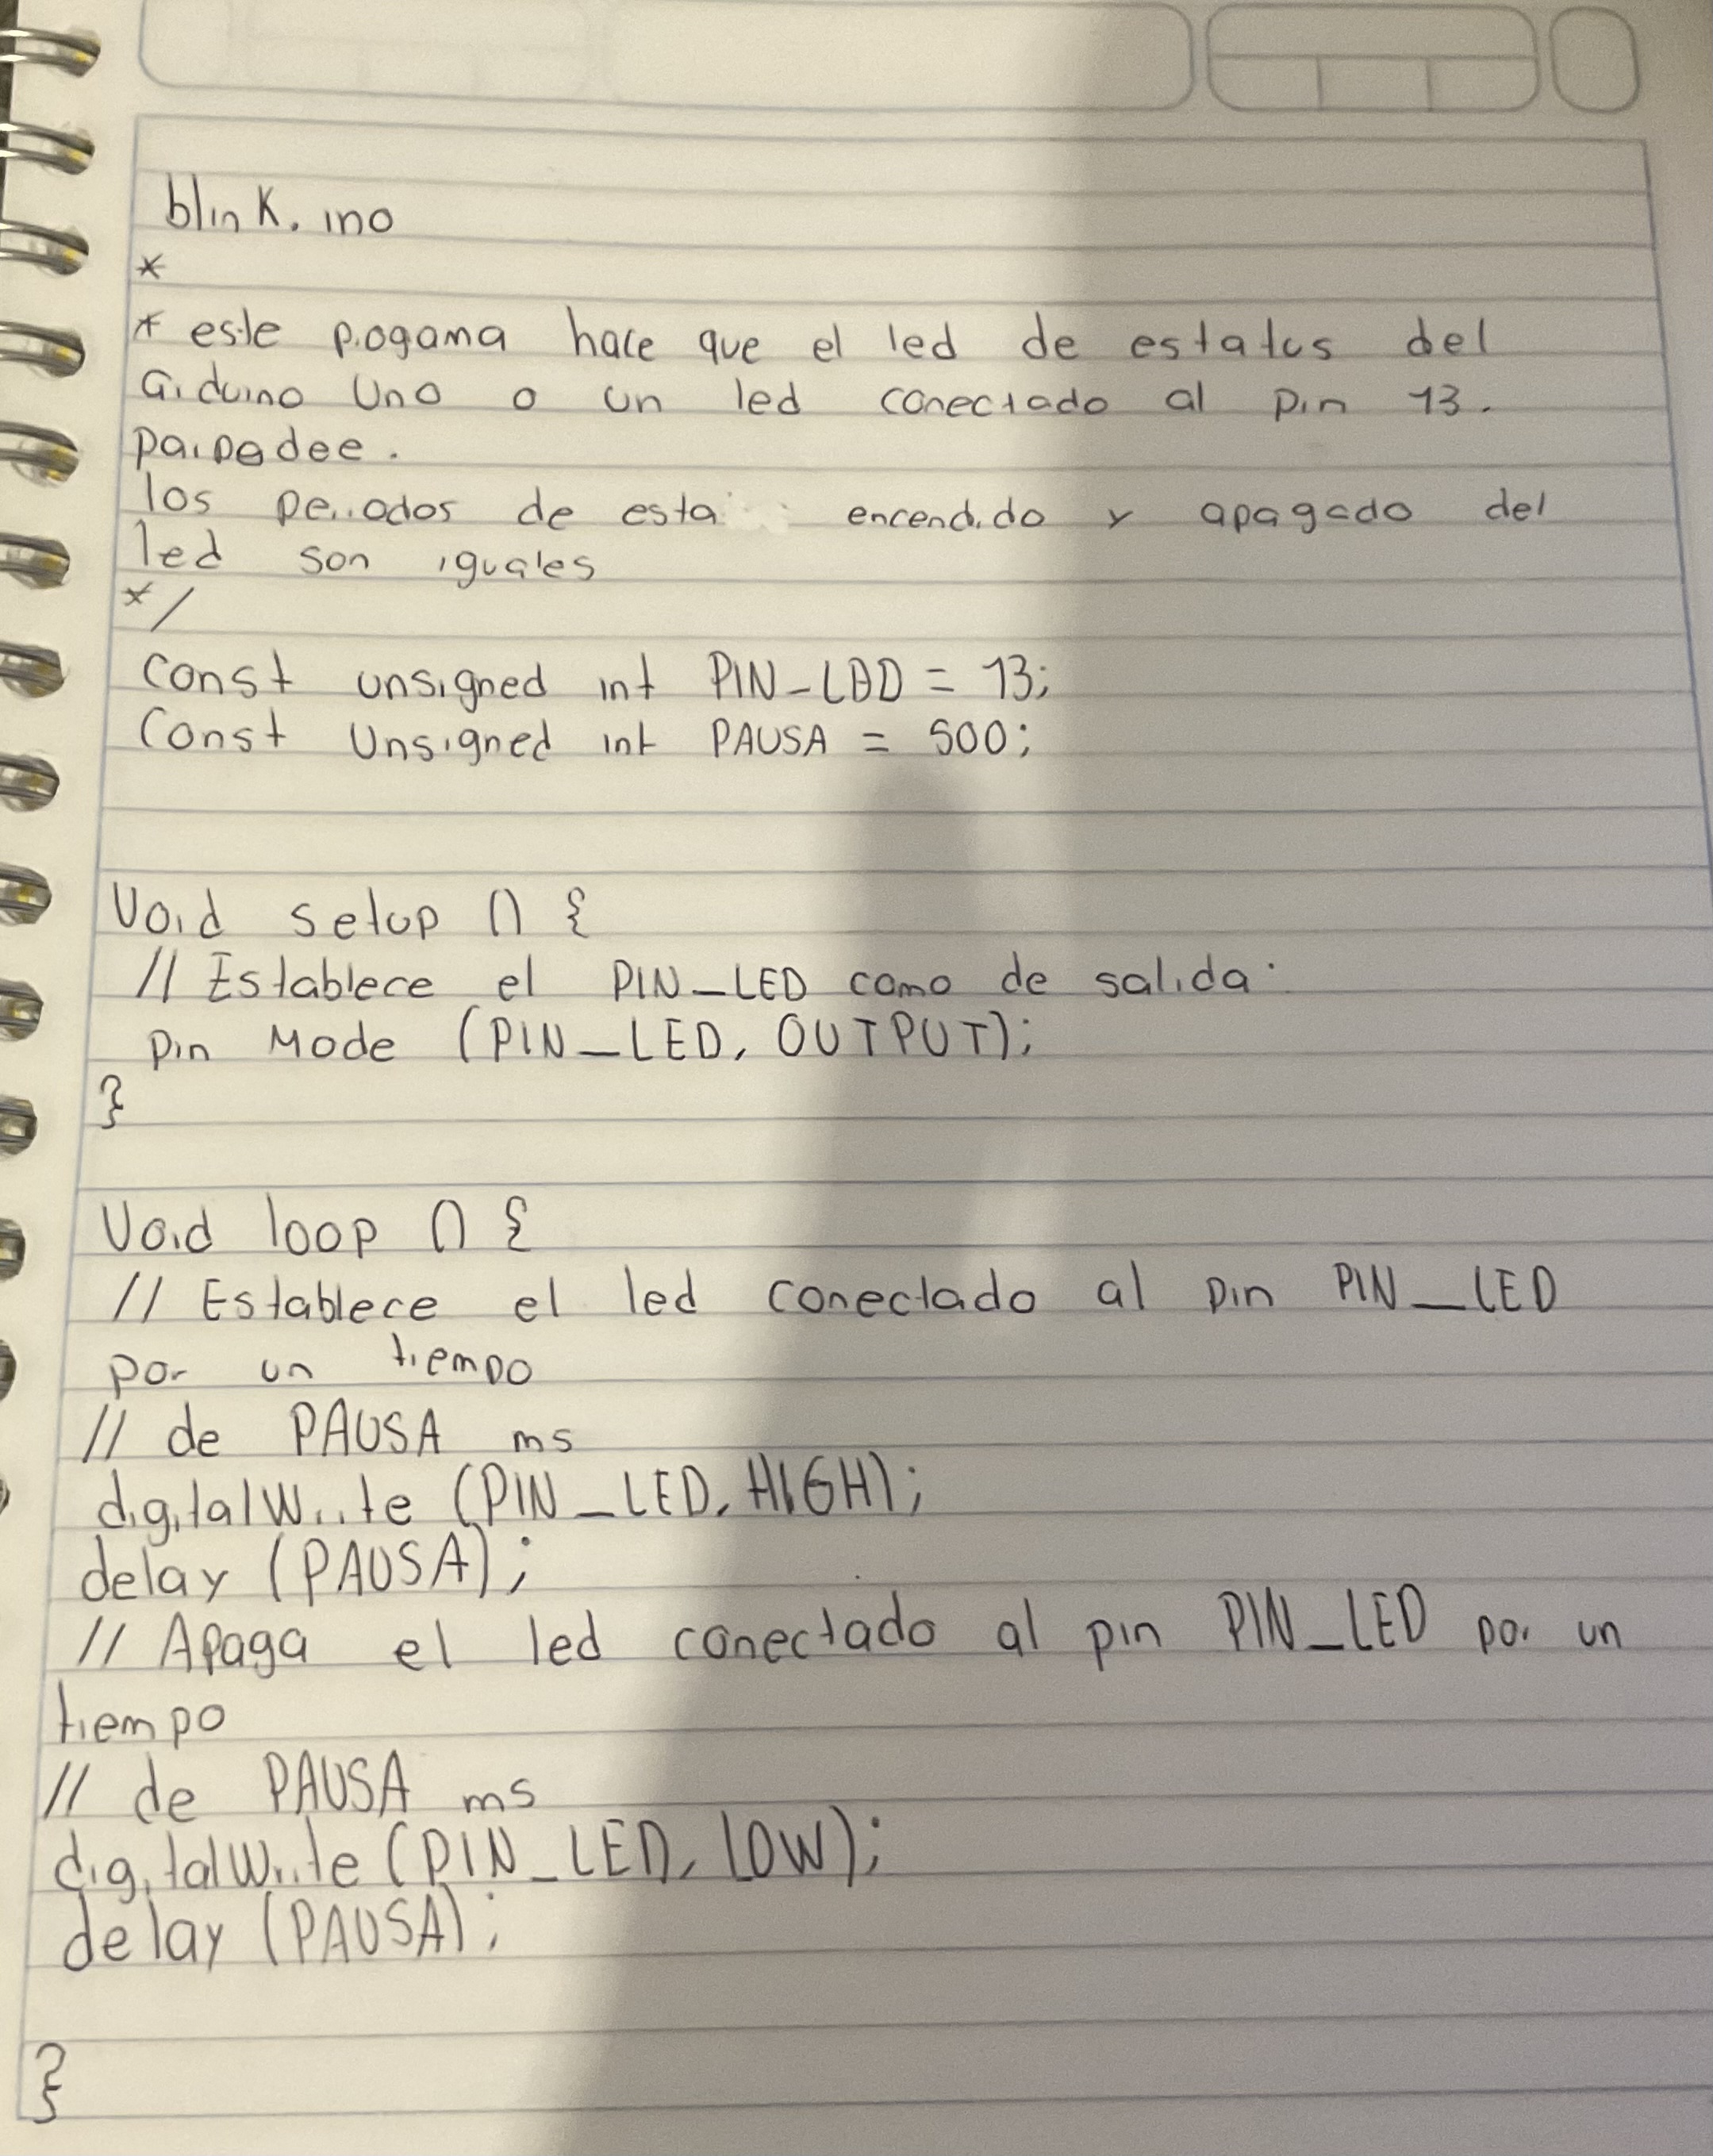 blink. ino
*
* este pogama hace que el led de estatus del
arduino Uno o un led conectado al pin 13.
parpadee.
los periodos de esta encendido y apagado del
led son iguales
*/
Const unsigned int PIN_LDD = 13;
Const Unsigned int PAUSA = 500;
Void setup () {
// Establece el PIN_LED como de salida:
pin Mode (PIN_LED, OUTPUT);
}
Void loop () {
// Establece el led conectado al pin PIN_LED
por un tiempo
// de PAUSA ms
digitalWrite (PIN_LED, HIGH);
delay (PAUSA);
// Apaga el led conectado al pin PIN_LED por un
tiempo
// de PAUSA ms
digitalWrite (PIN_LED, LOW);
delay (PAUSA);
}